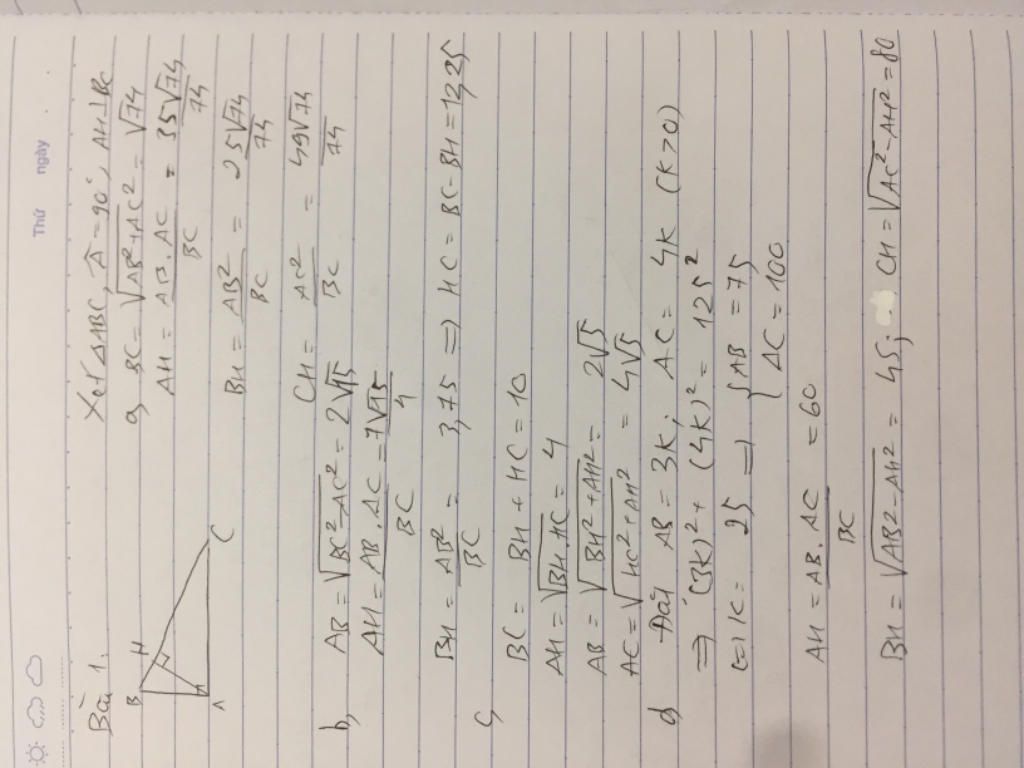 Thứ ngày
Bài 1.
Xét ΔABC, Â = 90°, AH ⊥ BC
B H
A C
a, BC = √(AB² + AC²) = √74
AH = AB . AC / BC = 35√74 / 74
BH = AB² / BC = 25√74 / 74
CH = AC² / BC = 49√74 / 74
b, AB = √(BC² - AC²) = 2√15
AH = AB . AC / BC = 7√15 / 4
BH = AB² / BC = 3,75 => HC = BC - BH = 12,25
c,
BC = BH + HC = 10
AH = √(BH . HC) = 4
AB = √(BH² + AH²) = 2√5
AC = √(HC² + AH²) = 4√5
d, Đặt AB = 3K; AC = 4K (K > 0)
=> (3K)² + (4K)² = 125²
(=) K = 25 => { AB = 75
{ AC = 100
AH = AB . AC / BC = 60
BH = √(AB² - AH²) = 45; CH = √(AC² - AH²) = 80